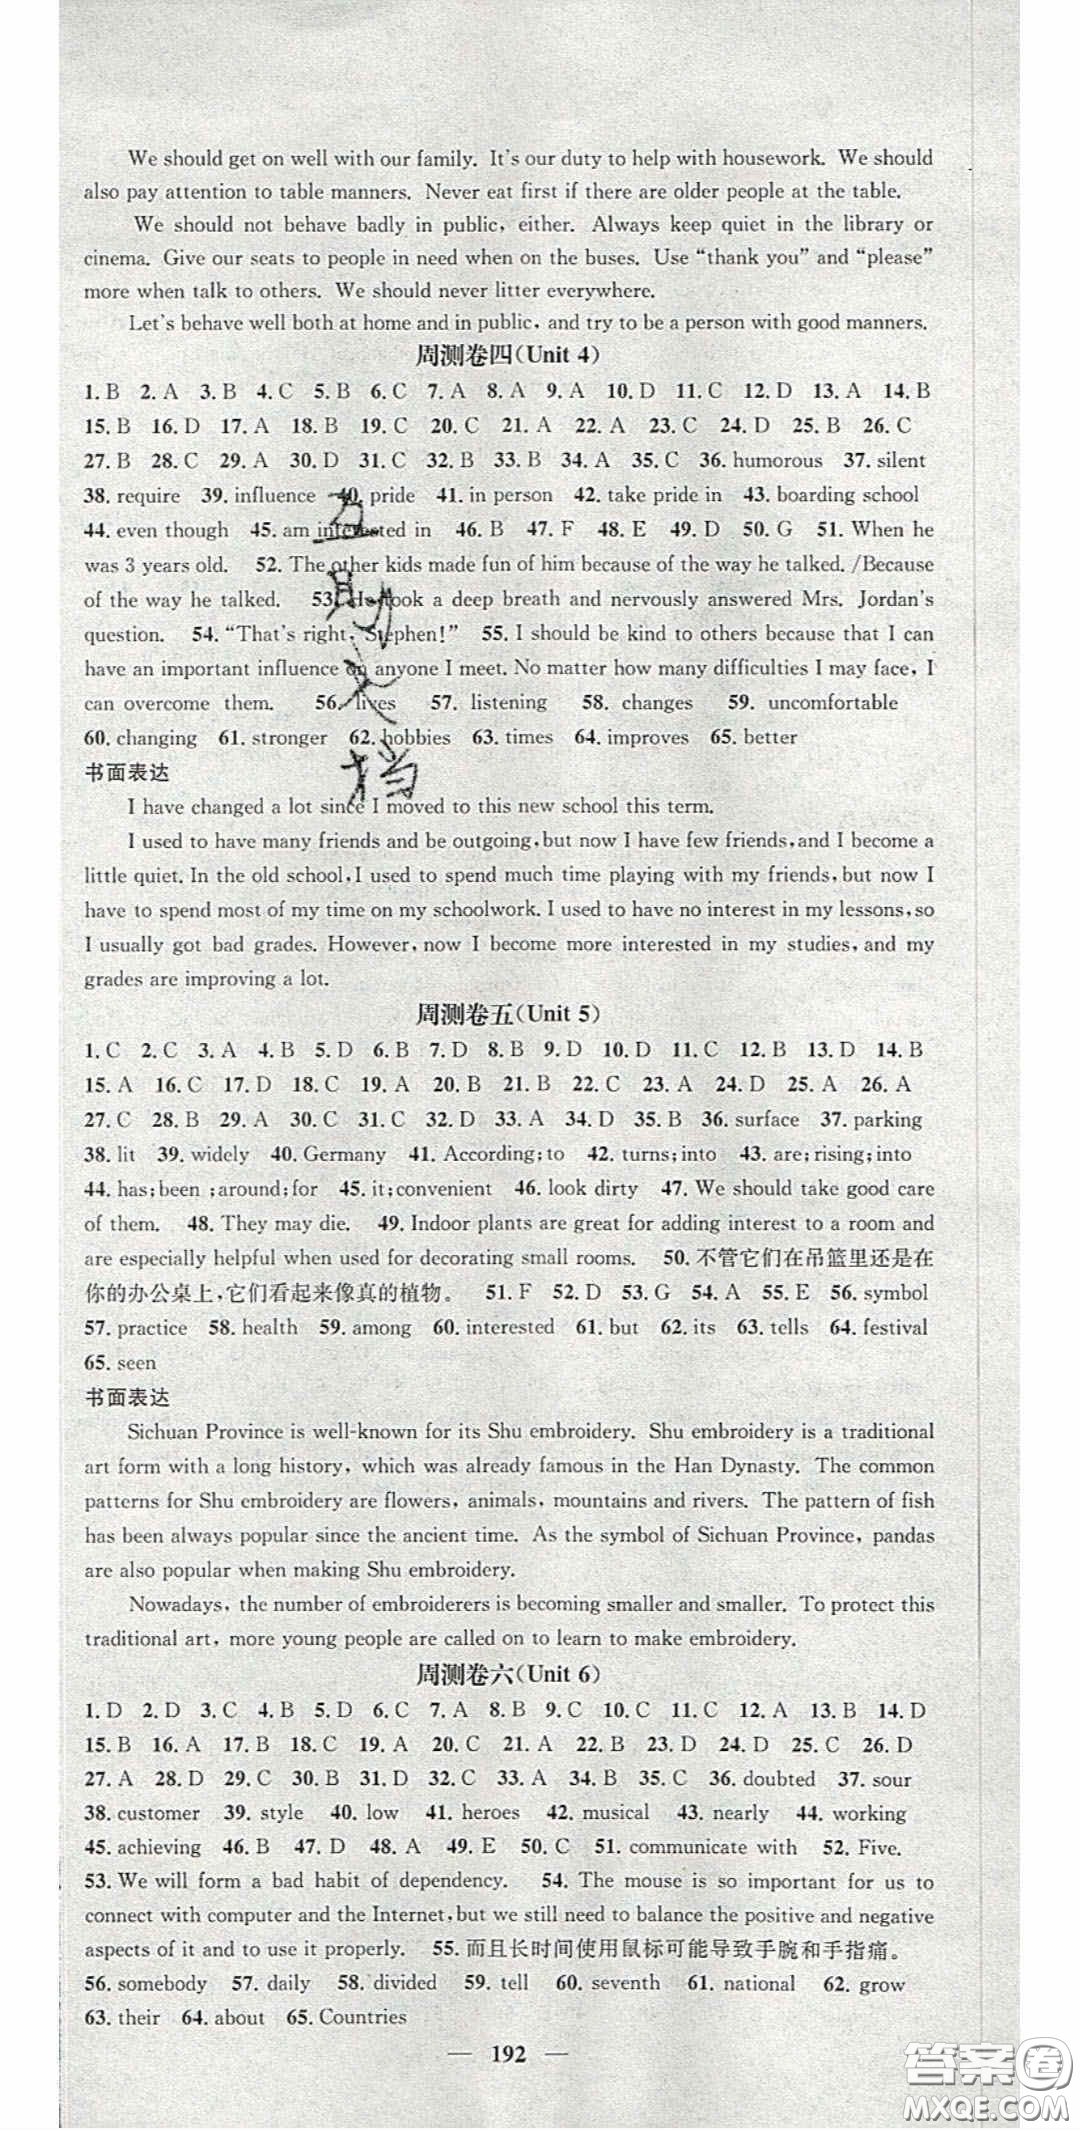 We should get on well with our family. It's our duty to help with housework. We should
also pay attention to table manners. Never eat first if there are older people at the table.
We should not behave badly in public, either. Always keep quiet in the library or
cinema. Give our seats to people in need when on the buses. Use “thank you” and “please”
more when talk to others. We should never litter everywhere.
Let's behave well both at home and in public, and try to be a person with good manners.
周测卷四(Unit 4)
1. B 2. A 3. B 4. C 5. B 6. C 7. A 8. A 9. A 10. D 11. C 12. D 13. A 14. B
15. B 16. D 17. A 18. B 19. C 20. C 21. A 22. A 23. C 24. D 25. B 26. C
27. B 28. C 29. A 30. D 31. C 32. B 33. B 34. A 35. C 36. humorous 37. silent
38. require 39. influence 40. pride 41. in person 42. take pride in 43. boarding school
44. even though 45. am interested in 46. B 47. F 48. E 49. D 50. G 51. When he
was 3 years old. 52. The other kids made fun of him because of the way he talked. /Because
of the way he talked. 53. He took a deep breath and nervously answered Mrs. Jordan's
question. 54. “That's right, Stephen!” 55. I should be kind to others because that I can
have an important influence on anyone I meet. No matter how many difficulties I may face, I
can overcome them. 56. lives 57. listening 58. changes 59. uncomfortable
60. changing 61. stronger 62. hobbies 63. times 64. improves 65. better
书面表达
I have changed a lot since I moved to this new school this term.
I used to have many friends and be outgoing, but now I have few friends, and I become a
little quiet. In the old school, I used to spend much time playing with my friends, but now I
have to spend most of my time on my schoolwork. I used to have no interest in my lessons, so
I usually got bad grades. However, now I become more interested in my studies, and my
grades are improving a lot.
周测卷五(Unit 5)
1. C 2. C 3. A 4. B 5. D 6. B 7. D 8. B 9. D 10. D 11. C 12. B 13. D 14. B
15. A 16. C 17. D 18. C 19. A 20. B 21. B 22. C 23. A 24. D 25. A 26. A
27. C 28. B 29. A 30. C 31. C 32. D 33. A 34. D 35. B 36. surface 37. parking
38. lit 39. widely 40. Germany 41. According; to 42. turns; into 43. are; rising; into
44. has; been ; around; for 45. it; convenient 46. look dirty 47. We should take good care
of them. 48. They may die. 49. Indoor plants are great for adding interest to a room and
are especially helpful when used for decorating small rooms. 50. 不管它们在吊篮里还是在
你的办公桌上,它们看起来像真的植物。 51. F 52. D 53. G 54. A 55. E 56. symbol
57. practice 58. health 59. among 60. interested 61. but 62. its 63. tells 64. festival
65. seen
书面表达
Sichuan Province is well-known for its Shu embroidery. Shu embroidery is a traditional
art form with a long history, which was already famous in the Han Dynasty. The common
patterns for Shu embroidery are flowers, animals, mountains and rivers. The pattern of fish
has been always popular since the ancient time. As the symbol of Sichuan Province, pandas
are also popular when making Shu embroidery.
Nowadays, the number of embroiderers is becoming smaller and smaller. To protect this
traditional art, more young people are called on to learn to make embroidery.
周测卷六(Unit 6)
1. D 2. D 3. C 4. B 5. D 6. C 7. A 8. B 9. C 10. C 11. C 12. A 13. B 14. D
15. B 16. A 17. B 18. C 19. A 20. C 21. A 22. B 23. D 24. D 25. C 26. D
27. A 28. D 29. C 30. B 31. D 32. C 33. A 34. B 35. C 36. doubted 37. sour
38. customer 39. style 40. low 41. heroes 42. musical 43. nearly 44. working
45. achieving 46. B 47. D 48. A 49. E 50. C 51. communicate with 52. Five.
53. We will form a bad habit of dependency. 54. The mouse is so important for us to
connect with computer and the Internet, but we still need to balance the positive and negative
aspects of it and to use it properly. 55. 而且长时间使用鼠标可能导致手腕和手指痛。
56. somebody 57. daily 58. divided 59. tell 60. seventh 61. national 62. grow
63. their 64. about 65. Countries
— 192 —
答案圈
MXQE.COM